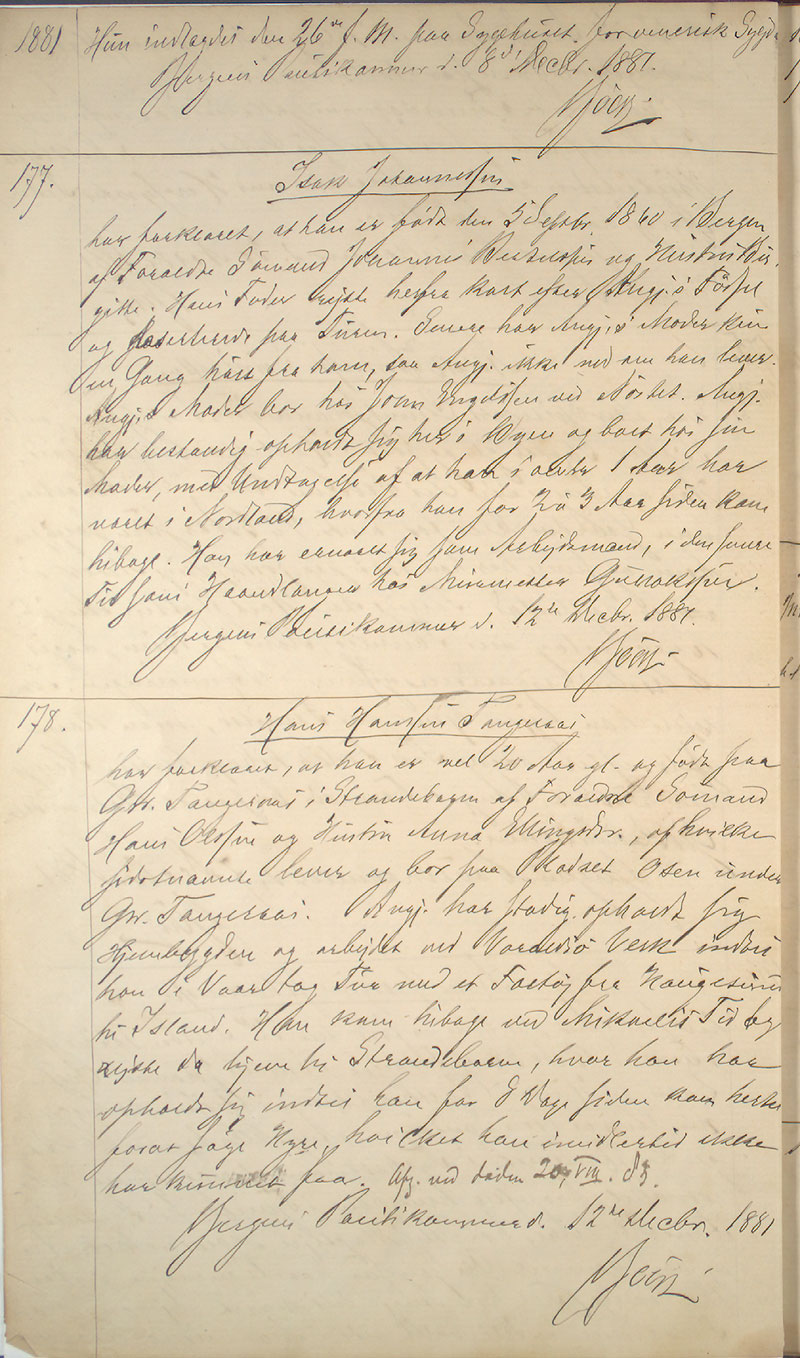 1881 Hun indlagdes den 26de f. M. paa Sygehuset for venerisk Sygd
Bergens Politikammer d. 8de Decbr. 1881.
177. Isak Johannessen
har forklaret, at han er født den 5 Septbr. 1860 i Bergen
af Forældre Sømand Johannes Bertelsen og Hustru Bir
gitte. Hans Fader rejste herfra kort efter Angj.s Fødsel
og deserterede paa Turen. Senere har Angj.s Moder kun
en Gang hørt fra ham, saa Angj. ikke ved om han lever.
Angj.s Moder bor hos Johan Engelsen ved Nøstet. Angj.
har bestandig opholdt sig her i Byen og boet hos sin
Moder, med Undtagelse af at han i over 1 Aar har
været i Nordland, hvorfra han for 2 à 3 Aar siden kom
tilbage. Han har ernæret sig som Arbejdsmand, i den senere
Tid som Haandlanger hos Murmester
Bergens Politikammer d. 12te Decbr. 1881.
178. Hans Hansen Tangeraas
har forklaret, at han er vel 20 Aar gl. og født paa
Grd. Tangeraas i Strandebarm af Forældre Sømand
Hans Olsen og Hustru Anna Ellingsdtr., af hvilke
sidstnævnte lever og bor paa Pladset Osen under
Grd. Tangeraas. Angj. har stadig opholdt sig
Hjembygden og arbejdet ved Varaldsø Verk indtil
han i Vaar tog Tur med et Fartøj fra Haugesund
til Island. Han kom tilbage ved Mikaelis Tid og
rejste da hjem til Strandebarm, hvor han har
opholdt sig indtil han for 8 Dage siden kom hertil
forat søge Hyre, hvilket han imidlertid ikke
har kunnet faa. Afg. ved døden 20/VIII. 83.
Bergens Politikammer d. 12te Decbr. 1881